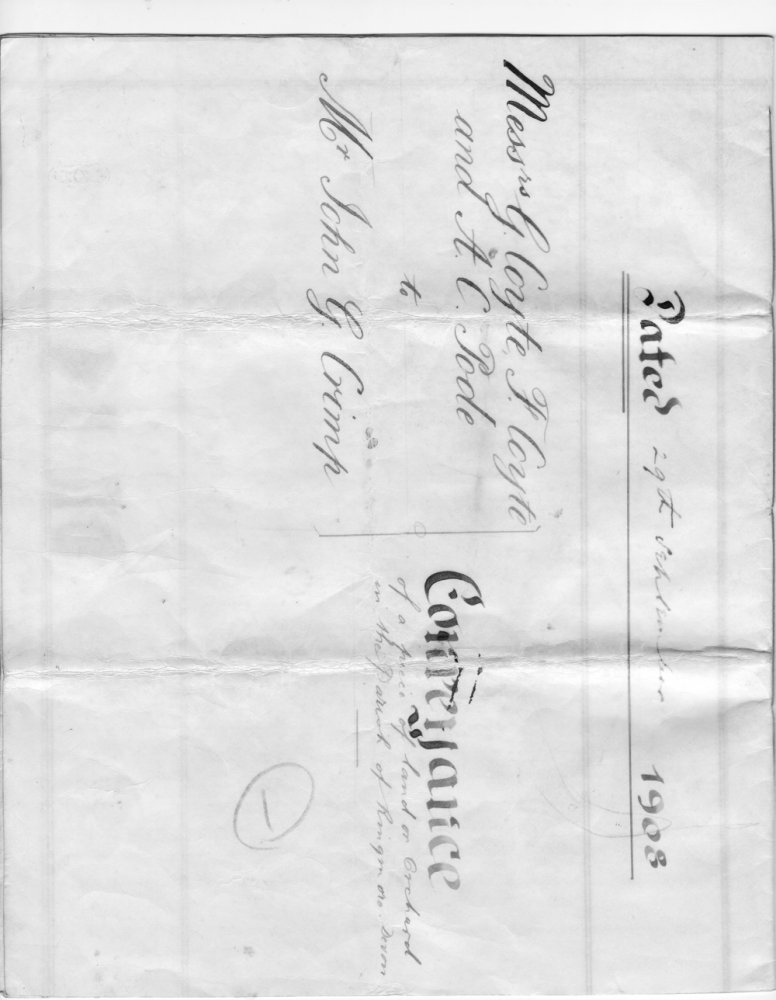 Dated 29th September 1908
Messrs G. Coyte, F. Coyte
and A. C. Pode
to
Mr John G. Crimp
Conveyance
of a piece of land or Orchard
in the Parish of Ringmore Devon
1